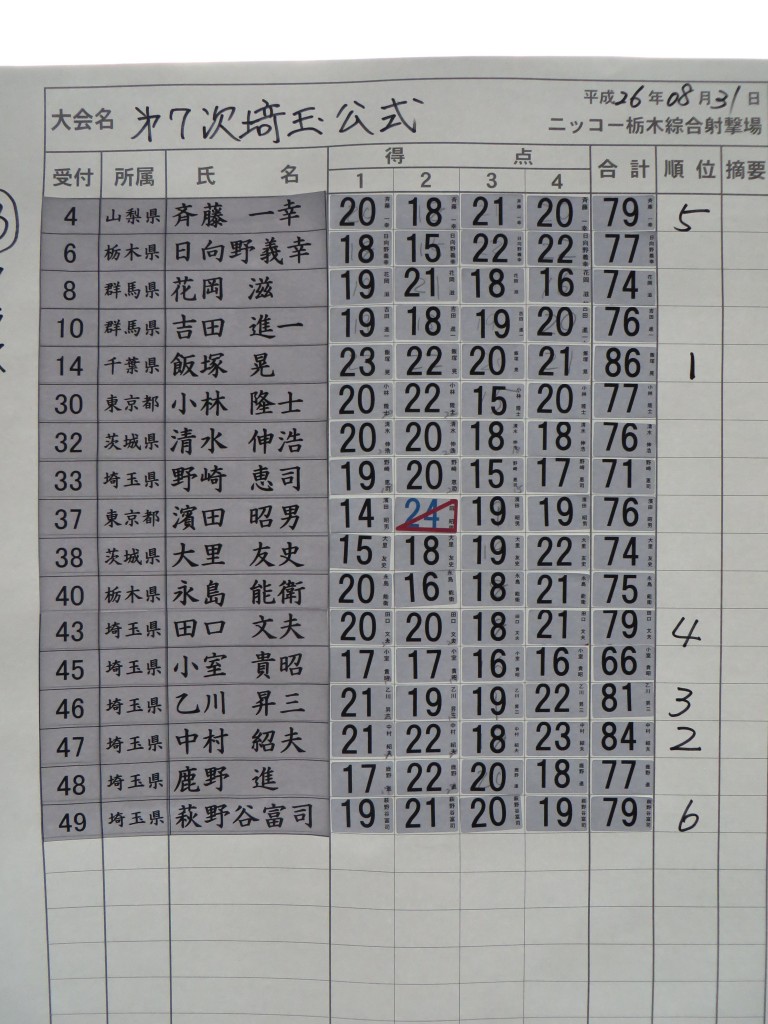 平成26年08月31日
大会名 第7次埼玉公式 ニッコー栃木綜合射撃場
受付 所属 氏名 得点 合計 順位 摘要
1 2 3 4
4 山梨県 斉藤 一幸 20 18 21 20 79 5
6 栃木県 日向野義幸 18 15 22 22 77
8 群馬県 花岡 滋 19 21 18 16 74
10 群馬県 吉田 進一 19 18 19 20 76
14 千葉県 飯塚 晃 23 22 20 21 86 1
30 東京都 小林 隆士 20 22 15 20 77
32 茨城県 清水 伸浩 20 20 18 18 76
33 埼玉県 野崎 恵司 19 20 15 17 71
37 東京都 濱田 昭男 14 24 19 19 76
38 茨城県 大里 友史 15 18 19 22 74
40 栃木県 永島 能衛 20 16 18 21 75
43 埼玉県 田口 文夫 20 20 18 21 79 4
45 埼玉県 小室 貴昭 17 17 16 16 66
46 埼玉県 乙川 昇三 21 19 19 22 81 3
47 埼玉県 中村 紹夫 21 22 18 23 84 2
48 埼玉県 鹿野 進 17 22 20 18 77
49 埼玉県 萩野谷富司 19 21 20 19 79 6